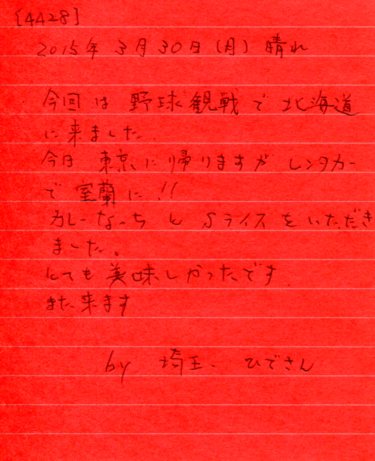 [4428]
2015年 3月30日(月) 晴れ
今回は 野球観戦で 北海道
に来ました.
今日 東京に帰りますが レンタカー
で 室蘭に!!
カレーなっち と Sライスを いただき
ました。
とても 美味しかったです.
また来ます
by 埼玉 ひでさん